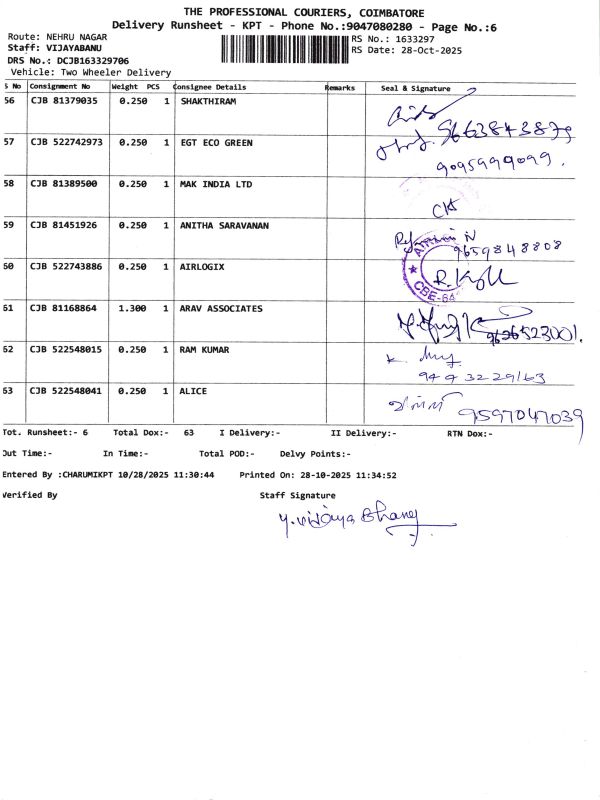 THE PROFESSIONAL COURIERS, COIMBATORE
Delivery Runsheet - KPT - Phone No.:9047080280 - Page No.:6
Route: NEHRU NAGAR
Staff: VIJAYABANU
DRS No.: DCJB163329706
Vehicle: Two Wheeler Delivery
RS No.: 1633297
RS Date: 28-Oct-2025
S No Consignment No Weight PCS Consignee Details Remarks Seal & Signature
56 CJB 81379035 0.250 1 SHAKTHIRAM
9663843879
57 CJB 522742973 0.250 1 EGT ECO GREEN
9095999099.
58 CJB 81389500 0.250 1 MAK INDIA LTD
59 CJB 81451926 0.250 1 ANITHA SARAVANAN
9659848808
60 CJB 522743886 0.250 1 AIRLOGIX
CBE-64
61 CJB 81168864 1.300 1 ARAV ASSOCIATES
62 CJB 522548015 0.250 1 RAM KUMAR
9443229163
63 CJB 522548041 0.250 1 ALICE
9597047039
Tot. Runsheet:- 6 Total Dox:- 63 I Delivery:- II Delivery:- RTN Dox:-
Out Time:- In Time:- Total POD:- Delvy Points:-
Entered By :CHARUMIKPT 10/28/2025 11:30:44 Printed On: 28-10-2025 11:34:52
Verified By Staff Signature